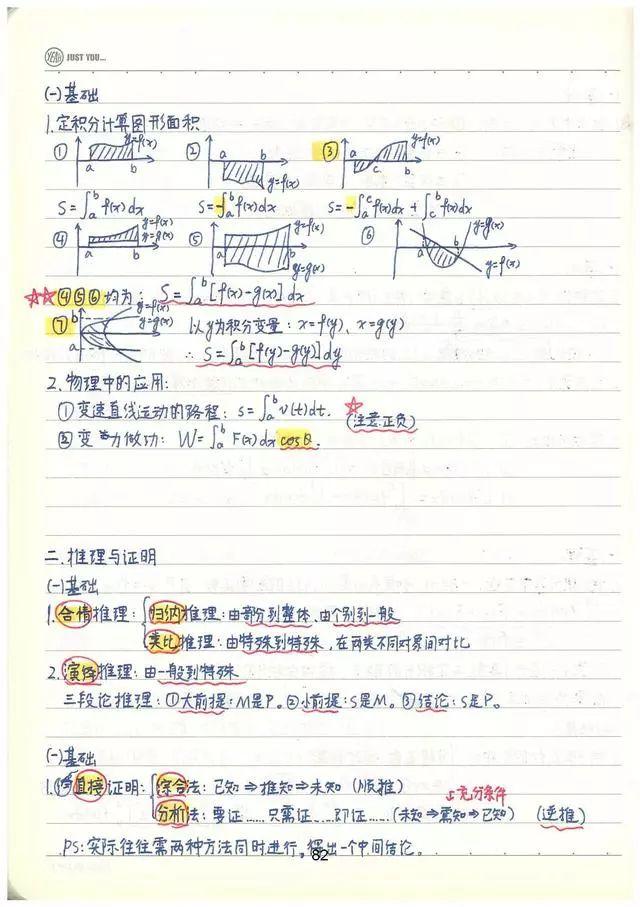 YEAH JUST YOU...
(一)基础
1.定积分计算图形面积
① a b y=f(x) ② a b y=f(x) ③ a c b y=f(x)
S=∫ₐᵇf(x)dx S=-∫ₐᵇf(x)dx S=-∫ₐᶜf(x)dx+∫꜀ᵇf(x)dx
④ a b y=f(x) y=g(x) ⑤ a b y=f(x) y=g(x) ⑥ a b y=g(x) y=f(x)
☆☆④⑤⑥均为: S=∫ₐᵇ[f(x)-g(x)]dx
⑦ b a y=f(x) y=g(x) 以y为积分变量: x=f(y)、x=g(y)
∴ S=∫ₐᵇ[f(y)-g(y)]dy
2.物理中的应用:
①变速直线运动的路程: s=∫ₐᵇv(t)dt. ☆(注意正负)
②变力做功: W=∫ₐᵇF(x)dx cosθ.
二.推理与证明
(一)基础
1.合情推理: { 归纳推理:由部分到整体、由个别到一般
类比推理:由特殊到特殊,在两类不同对象间对比
2.演绎推理:由一般到特殊
三段论推理:①大前提:M是P。②小前提:S是M。③结论:S是P。
(一)基础
1.①直接证明: { 综合法:已知⇒推知⇒未知 (顺推)
充分条件
分析法:要证……只需证……即证……(未知⇒需知⇒已知) (逆推)
PS:实际往往需两种方法同时进行。得出一个中间结论。
82